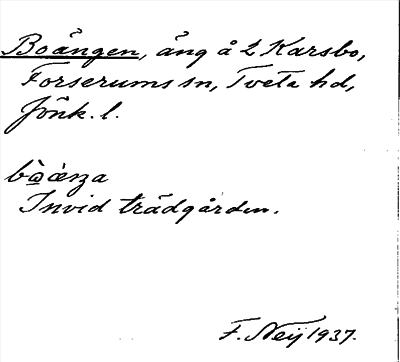 Boängen, äng å 2 Karsbo,
Forserums sn, Tveta hd,
Jönk. l.
Invid trädgården.
F. Neij 1937.